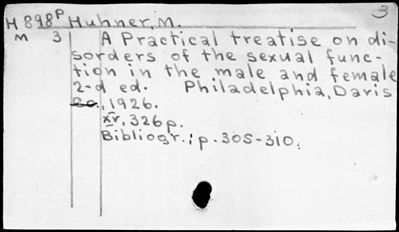 3
H898p Huhner, M.
M 3 A Practical treatise on di-
sorders of the sexual func-
tion in the male and female
2-d ed. Philadelphia, Davis
co., 1926.
xv, 326 p.
Bibliogr.: p. 305-310.